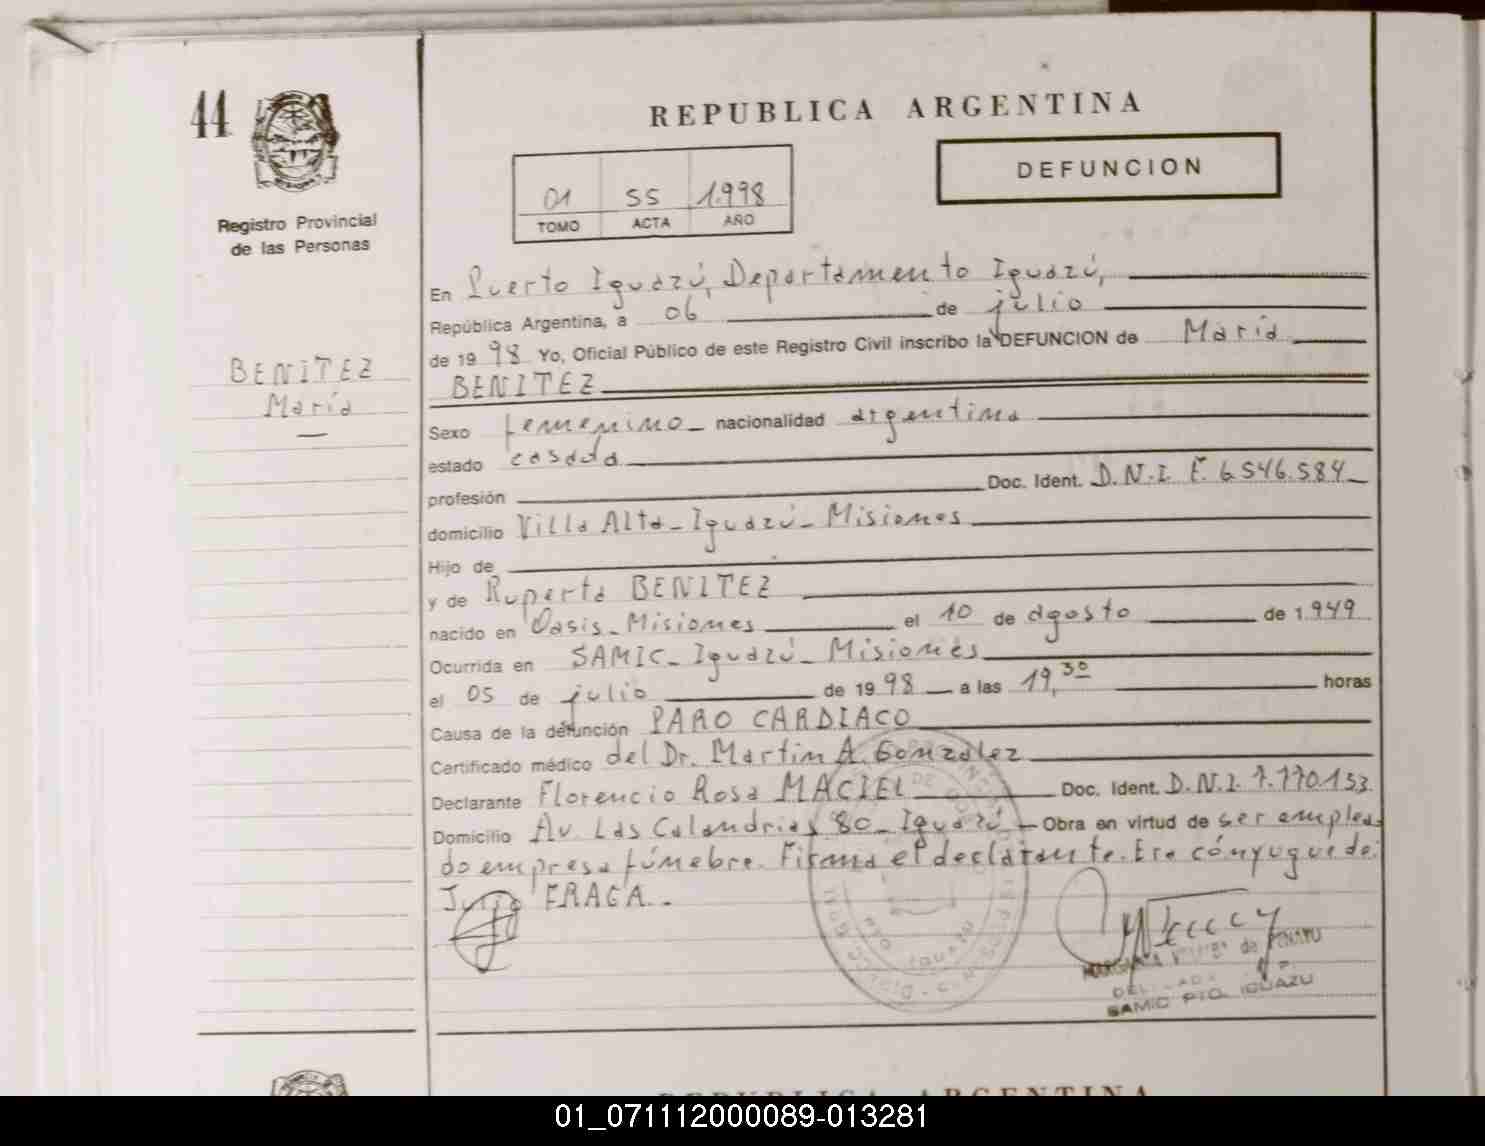 44
REPUBLICA ARGENTINA
DEFUNCION
01 55 1.998
TOMO ACTA AÑO
Registro Provincial
de las Personas
BENITEZ
María
En Puerto Iguazú, Departamento Iguazú,
República Argentina, a 06 de julio
de 1998 Yo, Oficial Público de este Registro Civil inscribo la DEFUNCION de María
BENITEZ
Sexo femenino nacionalidad argentina
estado casada
profesión Doc. Ident. D.N.I. F. 6.546.584
domicilio Villa Alta - Iguazú - Misiones
Hijo de
y de Ruperta BENITEZ
nacido en Oasis - Misiones el 10 de agosto de 1.949
Ocurrida en SAMIC - Iguazú - Misiones
el 05 de julio de 1998 a las 19,30 horas
Causa de la defunción PARO CARDIACO
Certificado médico del Dr. Martin A. Gonzalez
Declarante Florencio Rosa MACIEL Doc. Ident. D.N.I. 7.770.153
Domicilio Av. Las Calandrias 80 - Iguazú - Obra en virtud de ser emplea
do empresa fúnebre. Firma el declarante. Era cónyugue de:
FRAGA.-
de
SAMIC PTO. IGUAZU
REPUBLICA ARGENTINA
01_071112000089-013281